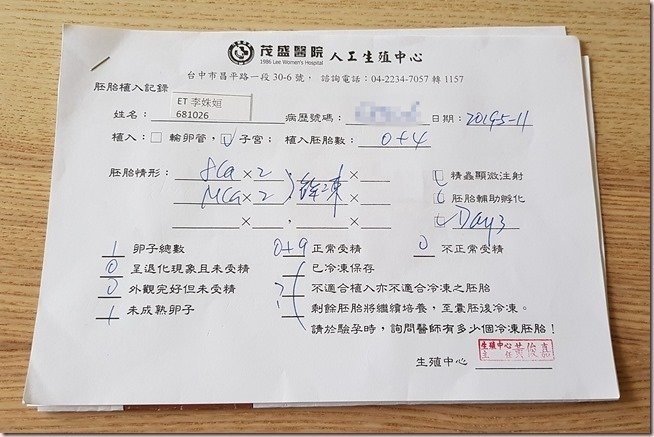 茂盛醫院 人工生殖中心
1986 Lee Women's Hospital
台中市昌平路一段 30-6 號， 諮詢電話：04-2234-7057 轉 1157
胚胎植入記錄
姓名： ET 李姝姐 681026 病歷號碼： 日期：2019-5-11
植入：□ 輸卵管，☑ 子宮； 植入胚胎數： 0+4
胚胎情形： 8CG × 2 × 精蟲顯微注射
MCG × 2 × 胚胎輔助孵化
× ， × Day3
1 卵子總數 0+9 正常受精 0 不正常受精
0 呈退化現象且未受精 已冷凍保存
0 外觀完好但未受精 不適合植入亦不適合冷凍之胚胎
1 未成熟卵子 剩餘胚胎將繼續培養，至囊胚後冷凍。
請於驗孕時，詢問醫師有多少個冷凍胚胎！
生殖中心
生殖中心 主任